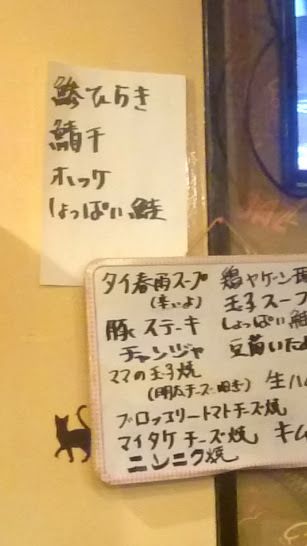 鯵ひらき
鯖干
ホッケ
しょっぱい鮭
タイ春雨スープ
(辛いよ)
豚ステーキ
チャンジャ
ママの玉子焼
(明太チーズ
ブロッコリートマトチーズ焼
マイタケチーズ焼
ニンニク焼
鶏ヤゲン
玉子スープ
しょっぱい鮭
豆苗いため
生ハ
キム